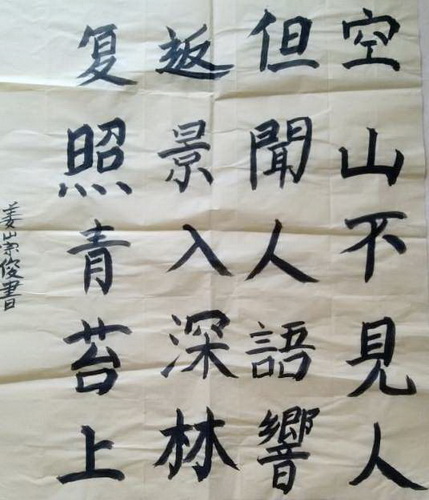 空山不見人
但聞人語響
返景入深林
复照青苔上
姜崇俊書